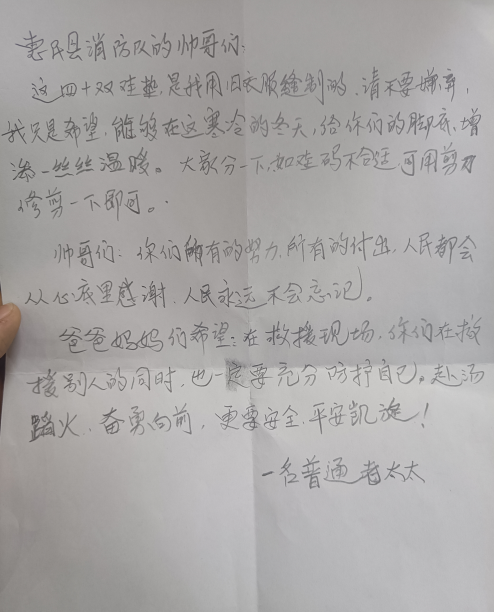 惠民县消防队的帅哥们:
这四十双鞋垫,是我用旧衣服缝制的、请不要嫌弃,
我只是希望,能够在这寒冷的冬天,给你们的脚底、增
添一丝丝温暖。大家分一下,如鞋码不合适,可用剪刀
修剪一下即可。
帅哥们:你们所有的努力,所有的付出,人民都会
从心底里感谢,人民永远不会忘记。
爸爸妈妈们希望:在救援现场,你们在救
援别人的同时,也一定要充分防护自己。赴汤
蹈火、奋勇向前,更要安全、平安凯旋!
一名普通老太太